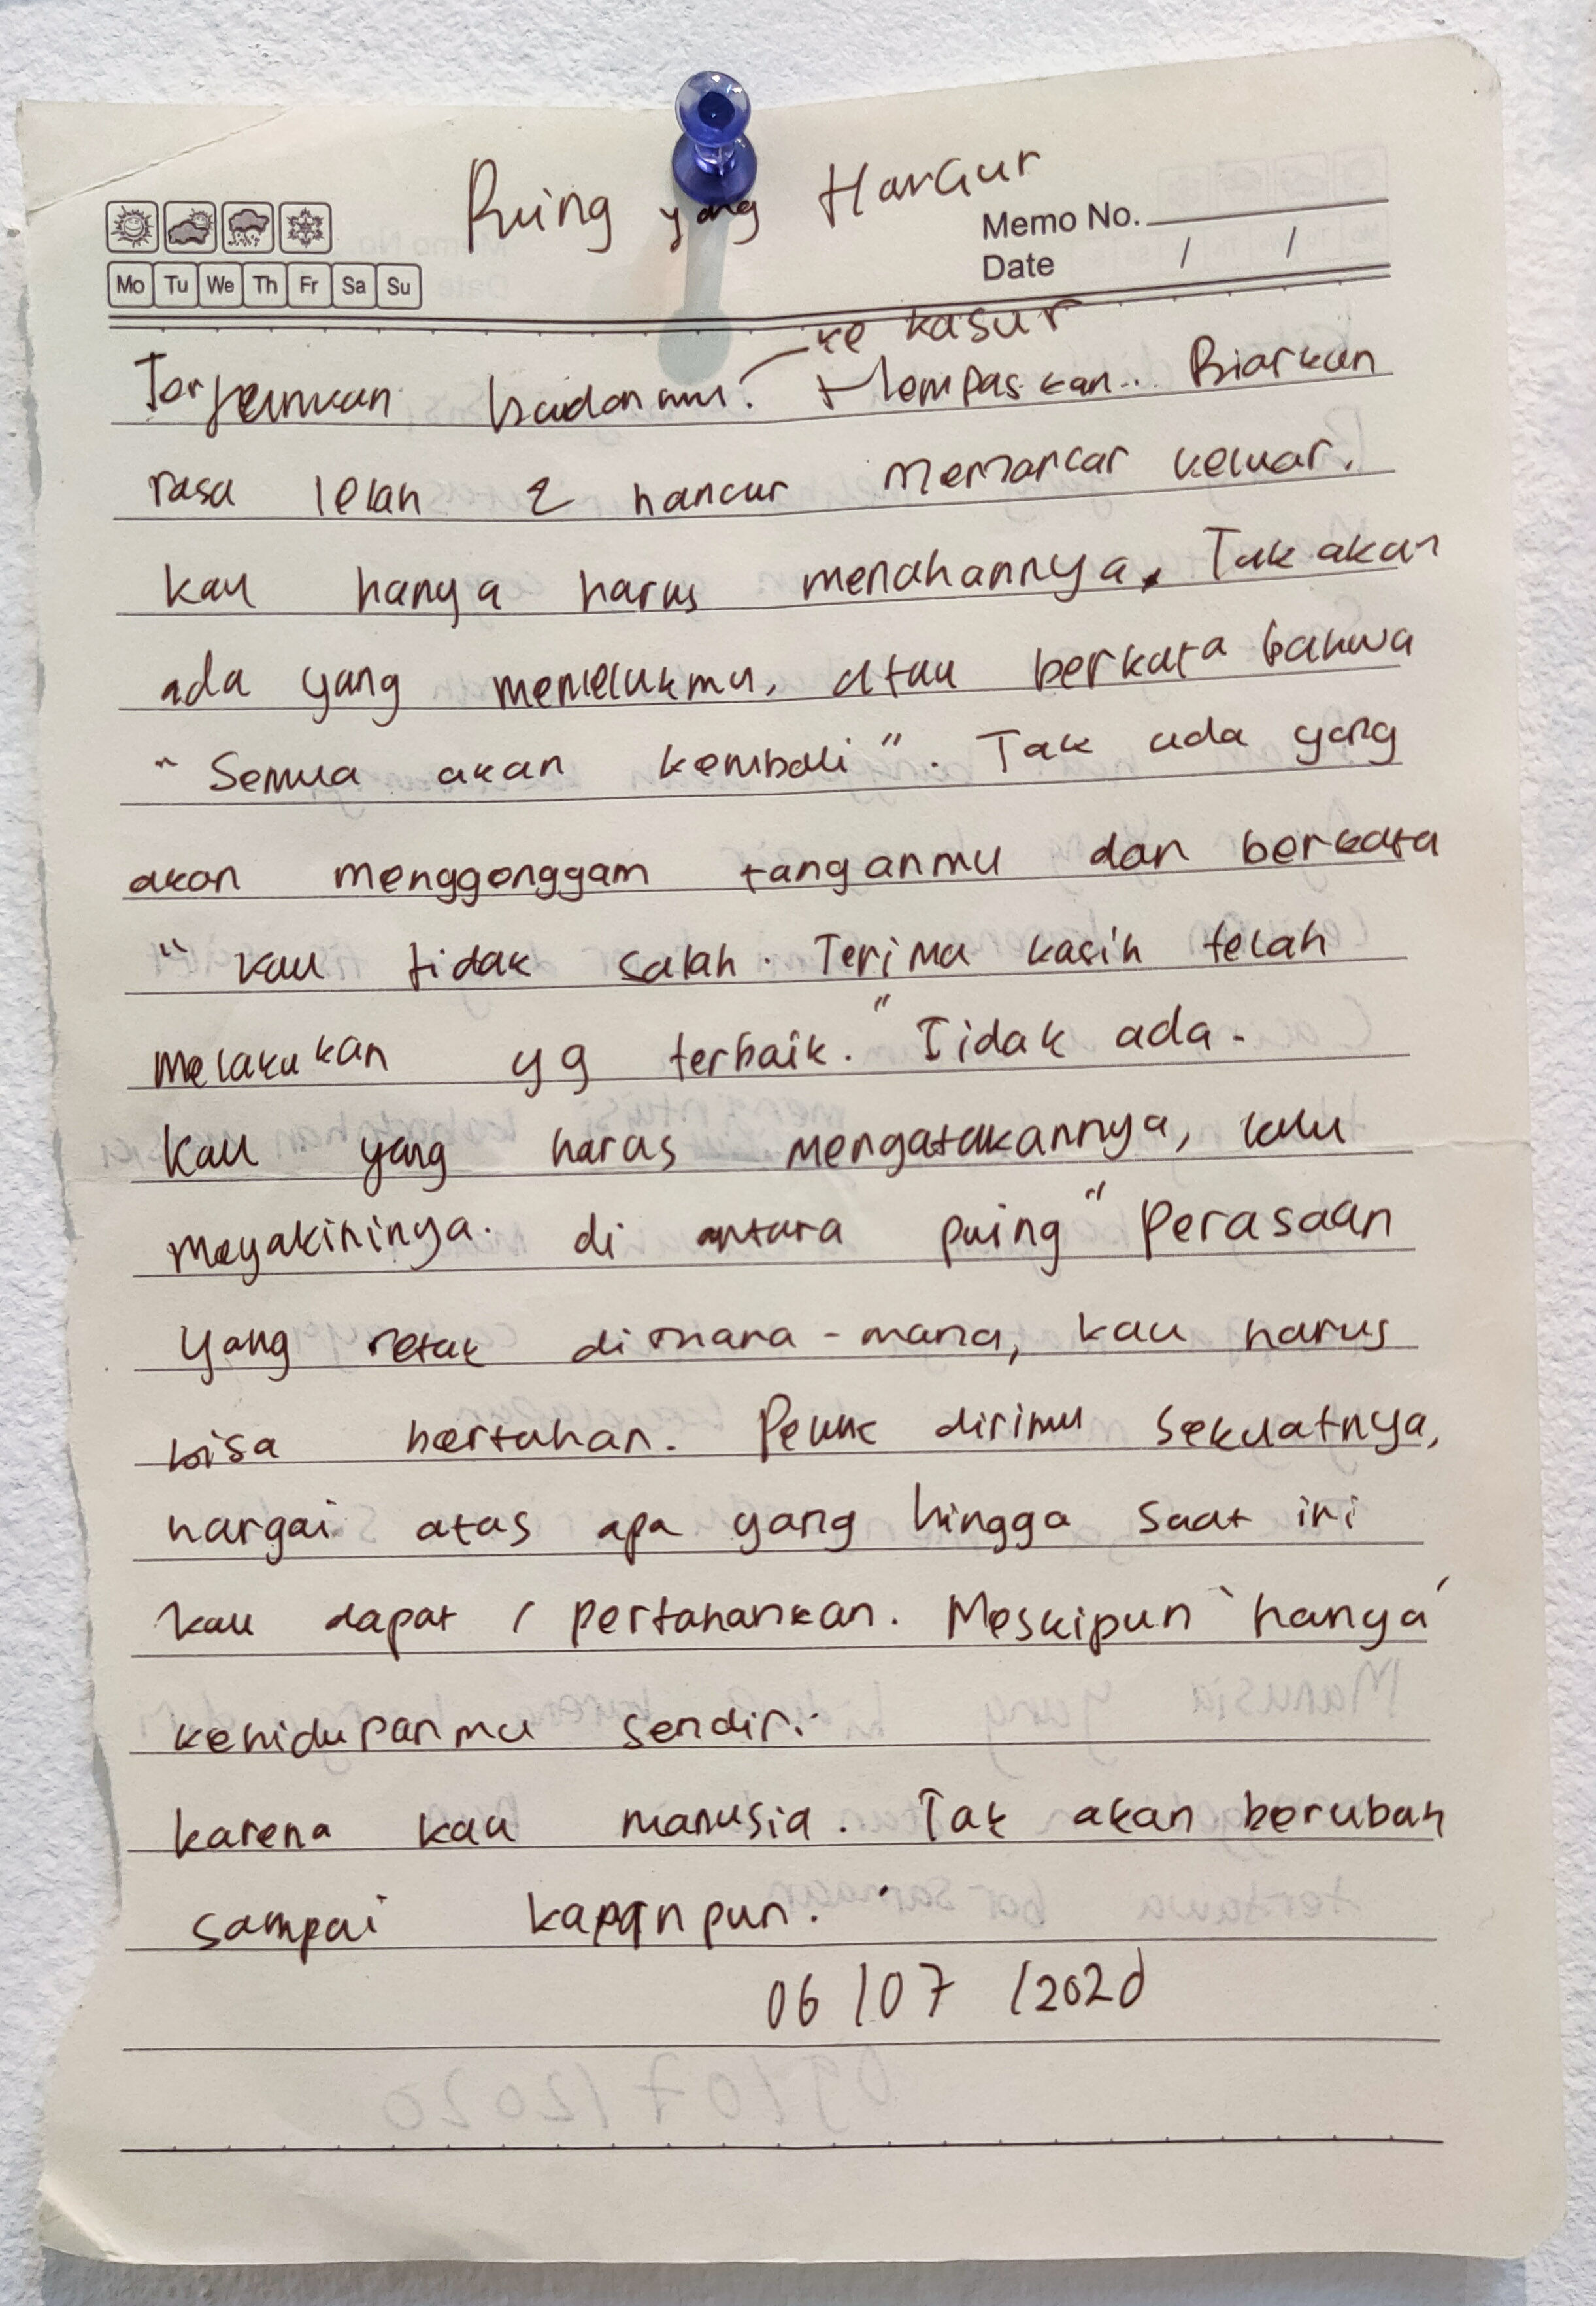 Puing yang Hancur
Memo No.
Date / /
Mo Tu We Th Fr Sa Su
ke kasur
Terjunkan badanmu. Hempaskan.. Biarkan
rasa lelah & hancur memancar keluar.
kau hanya harus menahannya. Tak akan
ada yang memelukmu, atau berkata bahwa
"Semua akan kembali". Tak ada yang
akan menggenggam tanganmu dan berkata
"kau tidak salah. Terima kasih telah
melakukan yg terbaik." Tidak ada.
Kau yang harus mengatakannya, lalu
meyakininya. di antara puing" perasaan
yang retak dimana-mana, kau harus
bisa bertahan. Peluk dirimu sekuatnya,
hargai atas apa yang hingga saat ini
kau dapat / pertahankan. Meskipun 'hanya'
kehidupanmu sendiri.
karena kau manusia. Tak akan berubah
sampai kapanpun.
06/07/2020